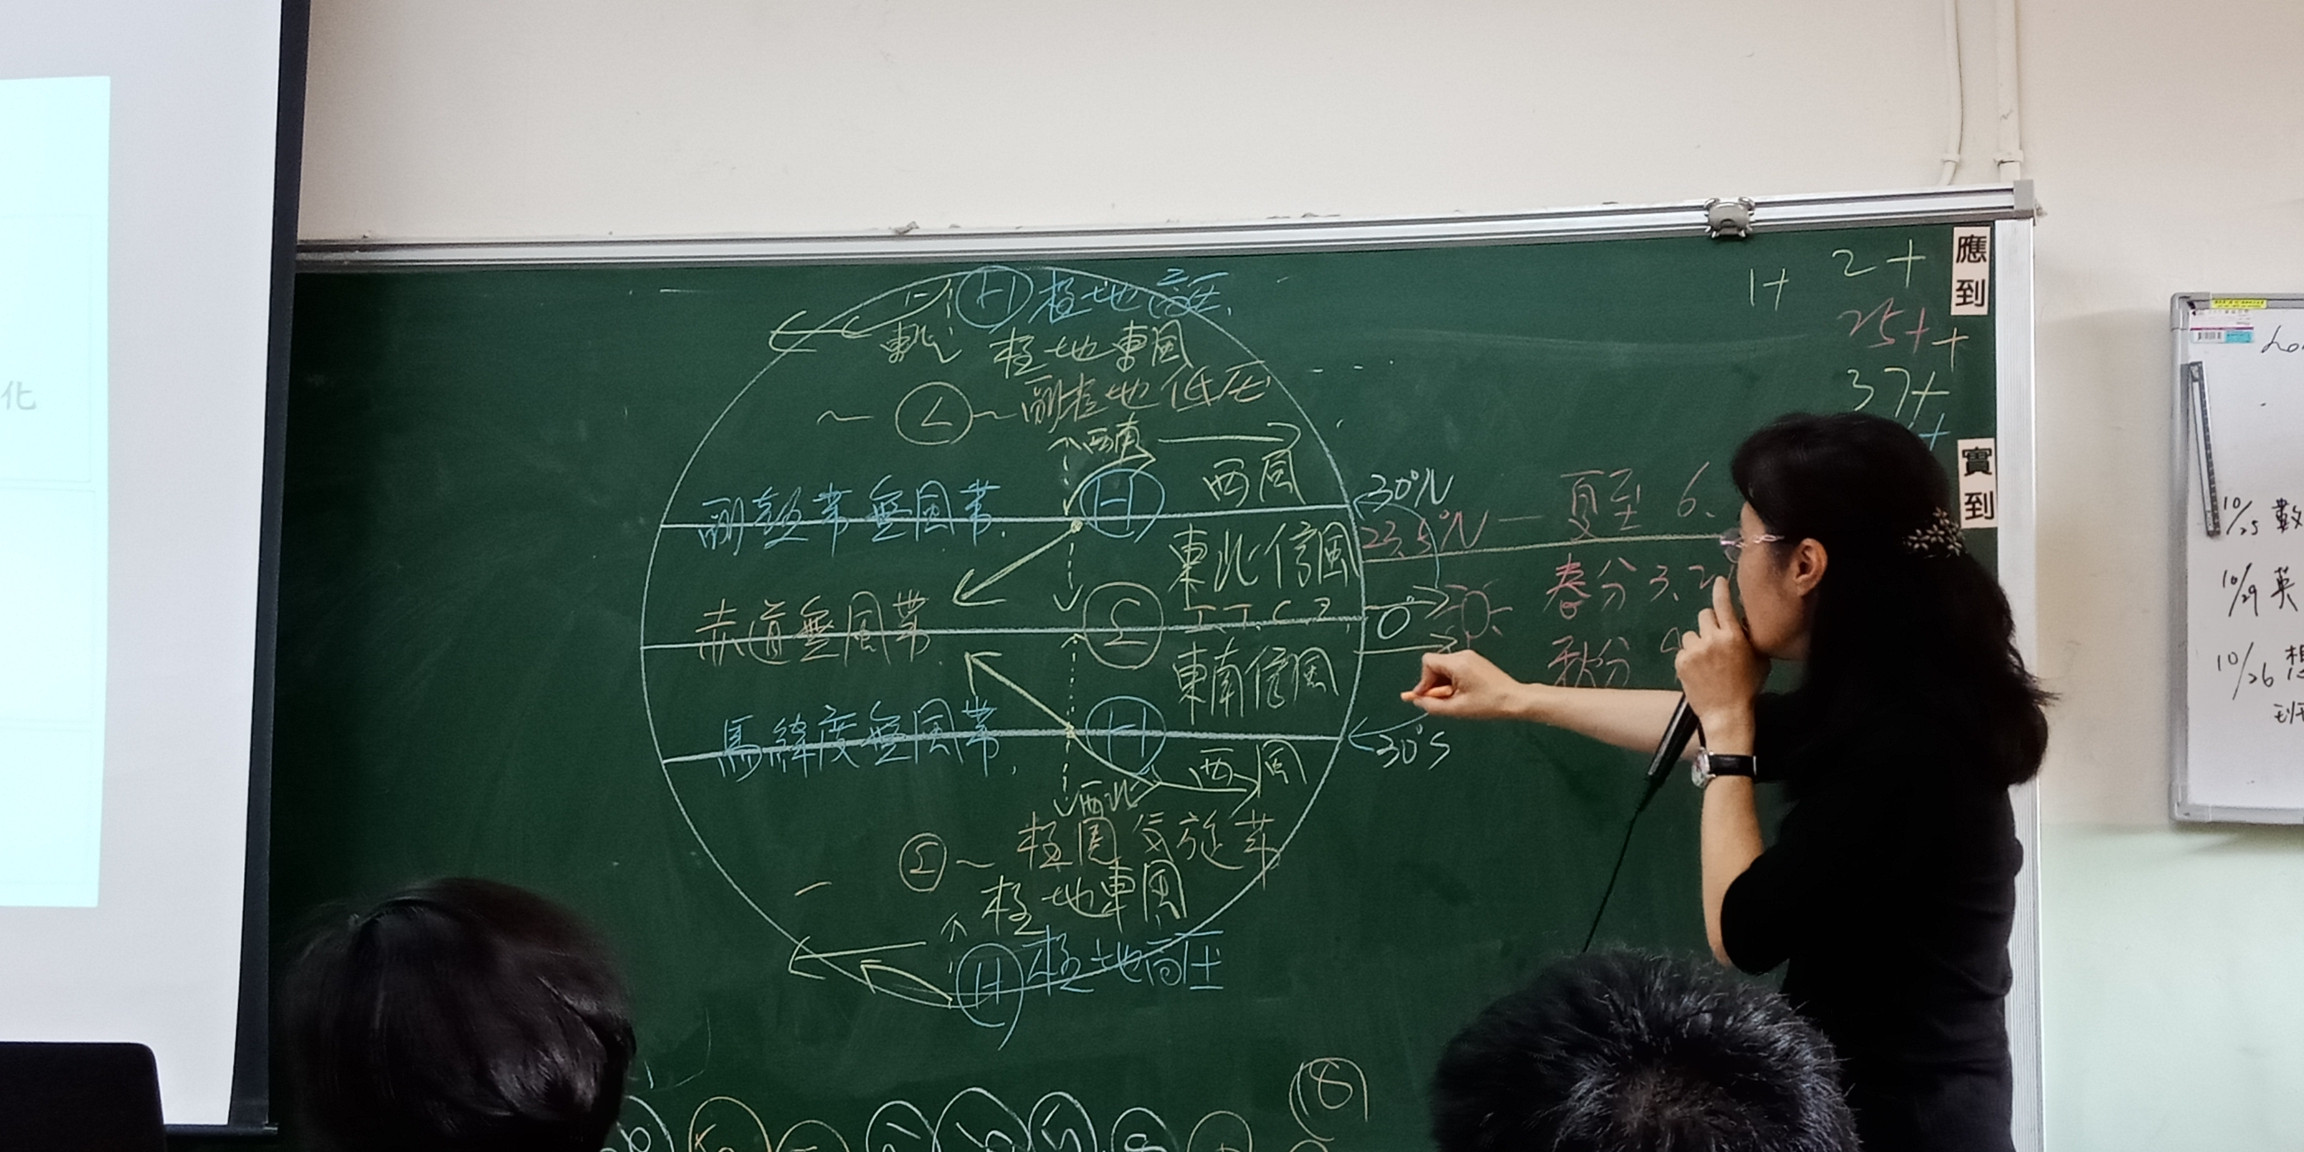 化
H 極地高壓
極地東風
L 副極地低壓
西南
H 西風
副熱帶無風帶
30°N
23.5°N — 夏至 6.
東北信風
春分 3.2
I.T.C.Z.
0°
赤道無風帶
秋分
東南信風
H
馬緯度無風帶
30°S
西風
西北
極圈氣旋
極地東風
H 極地高壓
8
1+
2+
25++
37+
應到
實到
10/25 數
10/29 英
10/26